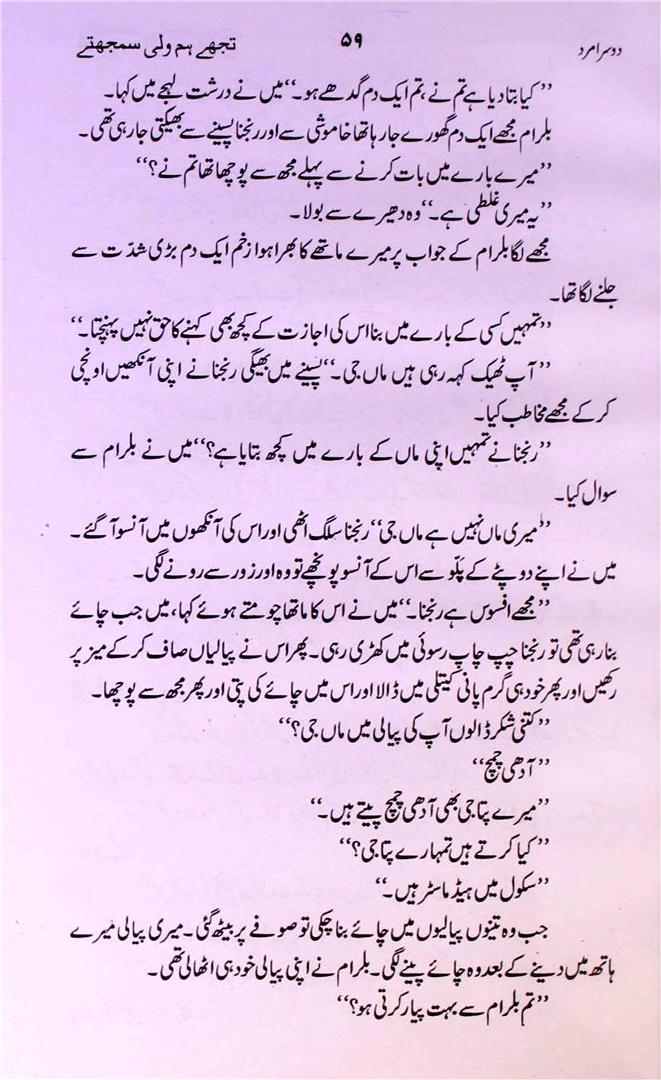 دوسرا مرد ۵۹ تجھے ہم ولی سمجھتے
’’کیا بتا دیا ہے تم نے، تم ایک دم گدھے ہو۔‘‘ میں نے درشت لہجے میں کہا۔
بلرام مجھے ایک دم گھورے جا رہا تھا خاموشی سے اور رنجنا پسینے سے بھیگتی جا رہی تھی۔
’’میرے بارے میں بات کرنے سے پہلے مجھ سے پوچھا تھا تم نے؟‘‘
’’یہ میری غلطی ہے۔‘‘ وہ دھیرے سے بولا۔
مجھے لگا بلرام کے جواب پر میرے ماتھے کا بھرا ہوا زخم ایک دم بڑی شدّت سے
جلنے لگا تھا۔
’’تمہیں کسی کے بارے میں بنا اس کی اجازت کے کچھ بھی کہنے کا حق نہیں پہنچتا۔‘‘
’’آپ ٹھیک کہہ رہی ہیں ماں جی۔‘‘ پسینے میں بھیگی رنجنا نے اپنی آنکھیں اونچی
کر کے مجھے مخاطب کیا۔
’’رنجنا نے تمہیں اپنی ماں کے بارے میں کچھ بتایا ہے؟‘‘ میں نے بلرام سے
سوال کیا۔
’’میری ماں نہیں ہے ماں جی‘‘ رنجنا سلگ اٹھی اور اس کی آنکھوں میں آنسو آ گئے۔
میں نے اپنے دوپٹے کے پلّو سے اس کے آنسو پونچھے تو وہ اور زور سے رونے لگی۔
’’مجھے افسوس ہے رنجنا۔‘‘ میں نے اس کا ماتھا چومتے ہوئے کہا، میں جب چائے
بنا رہی تھی تو رنجنا چپ چاپ رسوئی میں کھڑی رہی۔ پھر اس نے پیالیاں صاف کر کے میز پر
رکھیں اور پھر خود ہی گرم پانی کیتلی میں ڈالا اور اس میں چائے کی پتی اور پھر مجھ سے پوچھا۔
’’کتنی شکر ڈالوں آپ کی پیالی میں ماں جی؟‘‘
’’آدھی چمچ‘‘
’’میرے پتا جی بھی آدھی چمچ پیتے ہیں۔‘‘
’’کیا کرتے ہیں تمہارے پتا جی؟‘‘
’’سکول میں ہیڈ ماسٹر ہیں۔‘‘
جب وہ تینوں پیالیوں میں چائے بنا چکی تو صوفے پر بیٹھ گئی۔ میری پیالی میرے
ہاتھ میں دینے کے بعد وہ چائے پینے لگی۔ بلرام نے اپنی پیالی خود ہی اٹھالی تھی۔
’’تم بلرام سے بہت پیار کرتی ہو؟‘‘